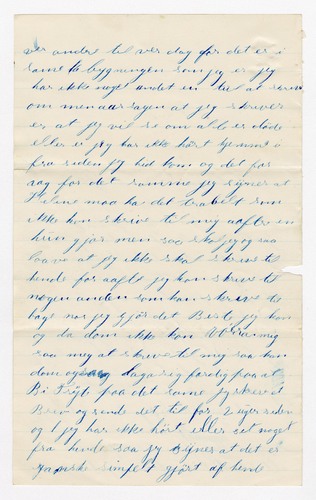 ver andere til ver dag for det er i
samme bygningen som jeg er jeg
har ikke noget andet en til at
om men aarsagen at jeg skriver
er at jeg vil se om alle er døde
eller ei jeg har ikke hørt hjemme
fra siden jeg hid kom og det for
og for det samme jeg synes at
maa ha det travelt som
ikke kan skrive til mig aafte en
hun gjør men saa skal jeg og saa
loave at jeg ikke skal skrive til
hende for aafte jeg kan skrive til
nogen anden som kan skreve til
bage nor jeg gjør det Beste jeg kan
og da dom ikke kan
saa meg at skrive til mig saa kan
dom og dagasig fardig paa at
Bi paa det same jeg skrev et
Brev og sende det til for 2 uger siden
og jeg har ikke hørt eller set noget
fra hende saa jeg synes at det er
ganske simpelt gjort af hende